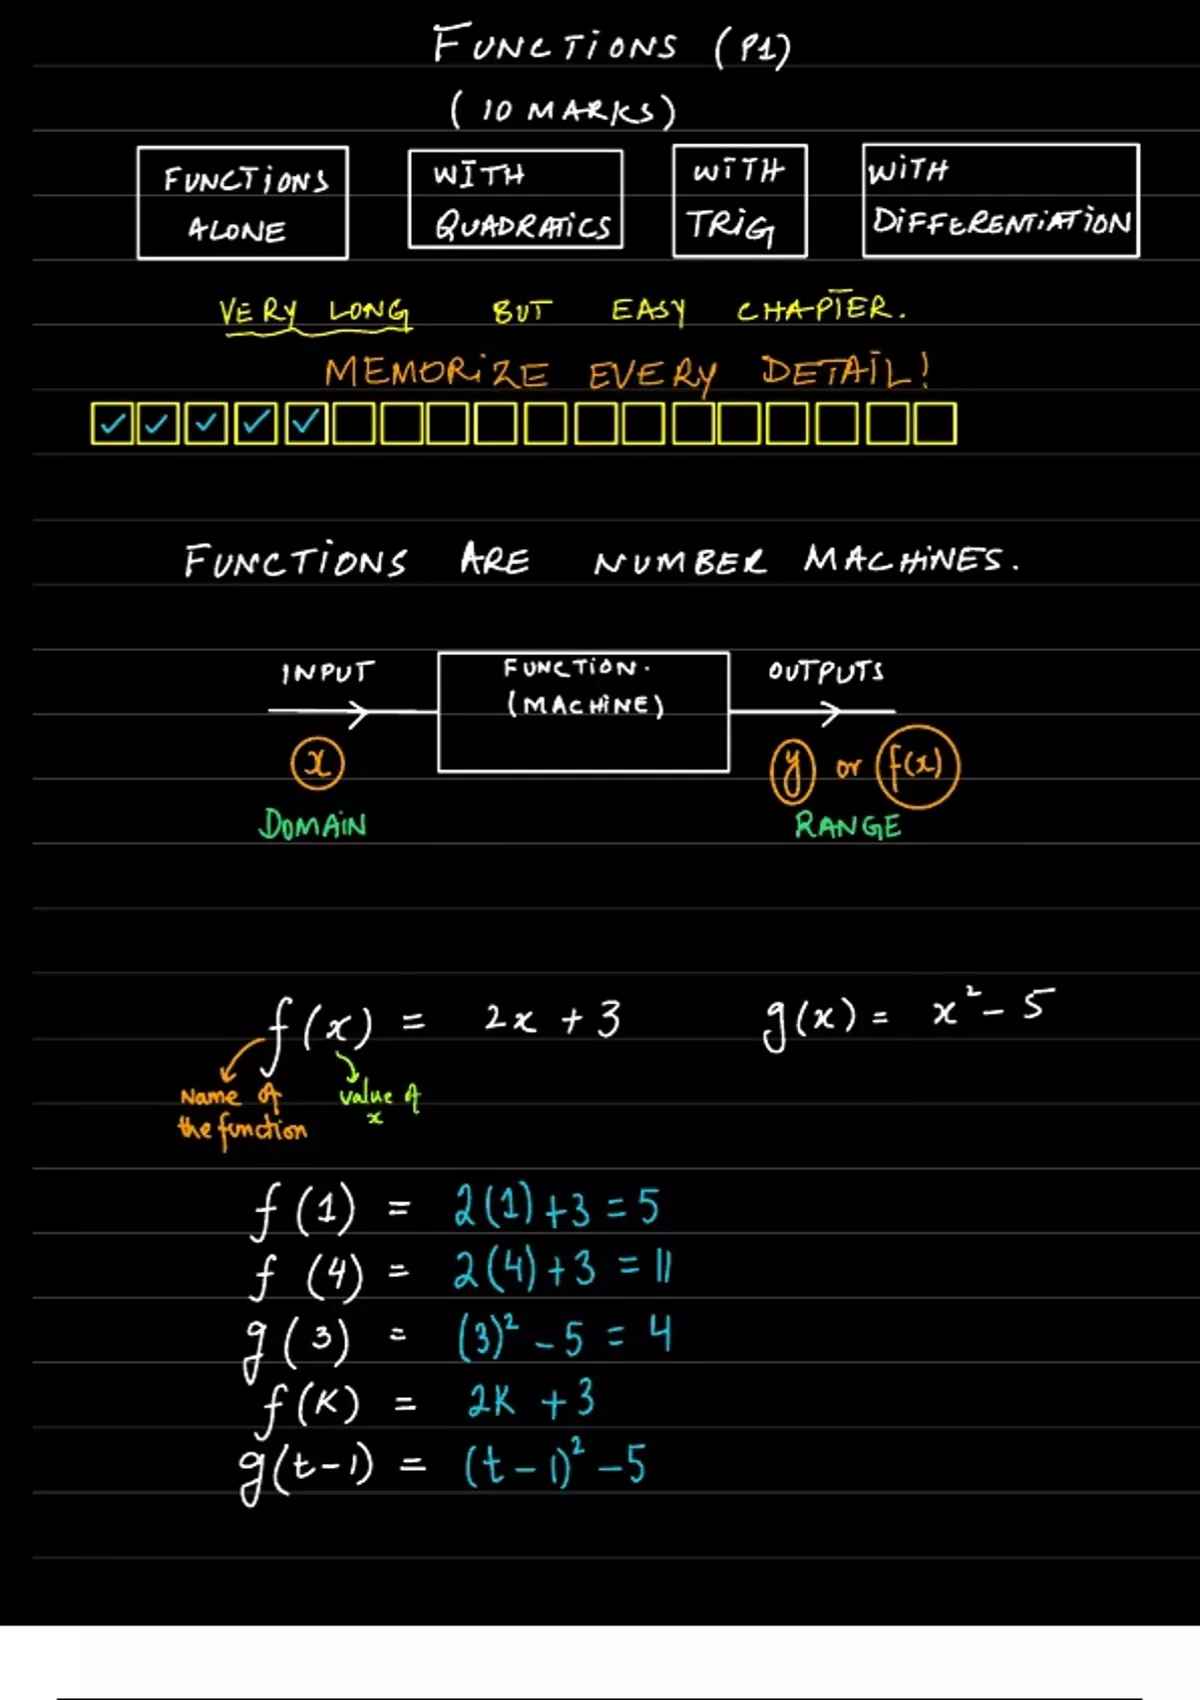 FUNCTIONS (P1)
(10 MARKS)
FUNCTIONS ALONE
WITH QUADRATICS
WITH TRIG
WITH DIFFERENTIATION
VERY LONG BUT EASY CHAPTER.
MEMORIZE EVERY DETAIL!
FUNCTIONS ARE NUMBER MACHINES.
INPUT
FUNCTION.
(MACHINE)
OUTPUTS
x
y or f(x)
DOMAIN
RANGE
f(x) = 2x + 3
g(x) = x² - 5
Name of
the function
value of
x
f(1) = 2(1) + 3 = 5
f(4) = 2(4) + 3 = 11
g(3) = (3)² - 5 = 4
f(K) = 2K + 3
g(t-1) = (t-1)² - 5